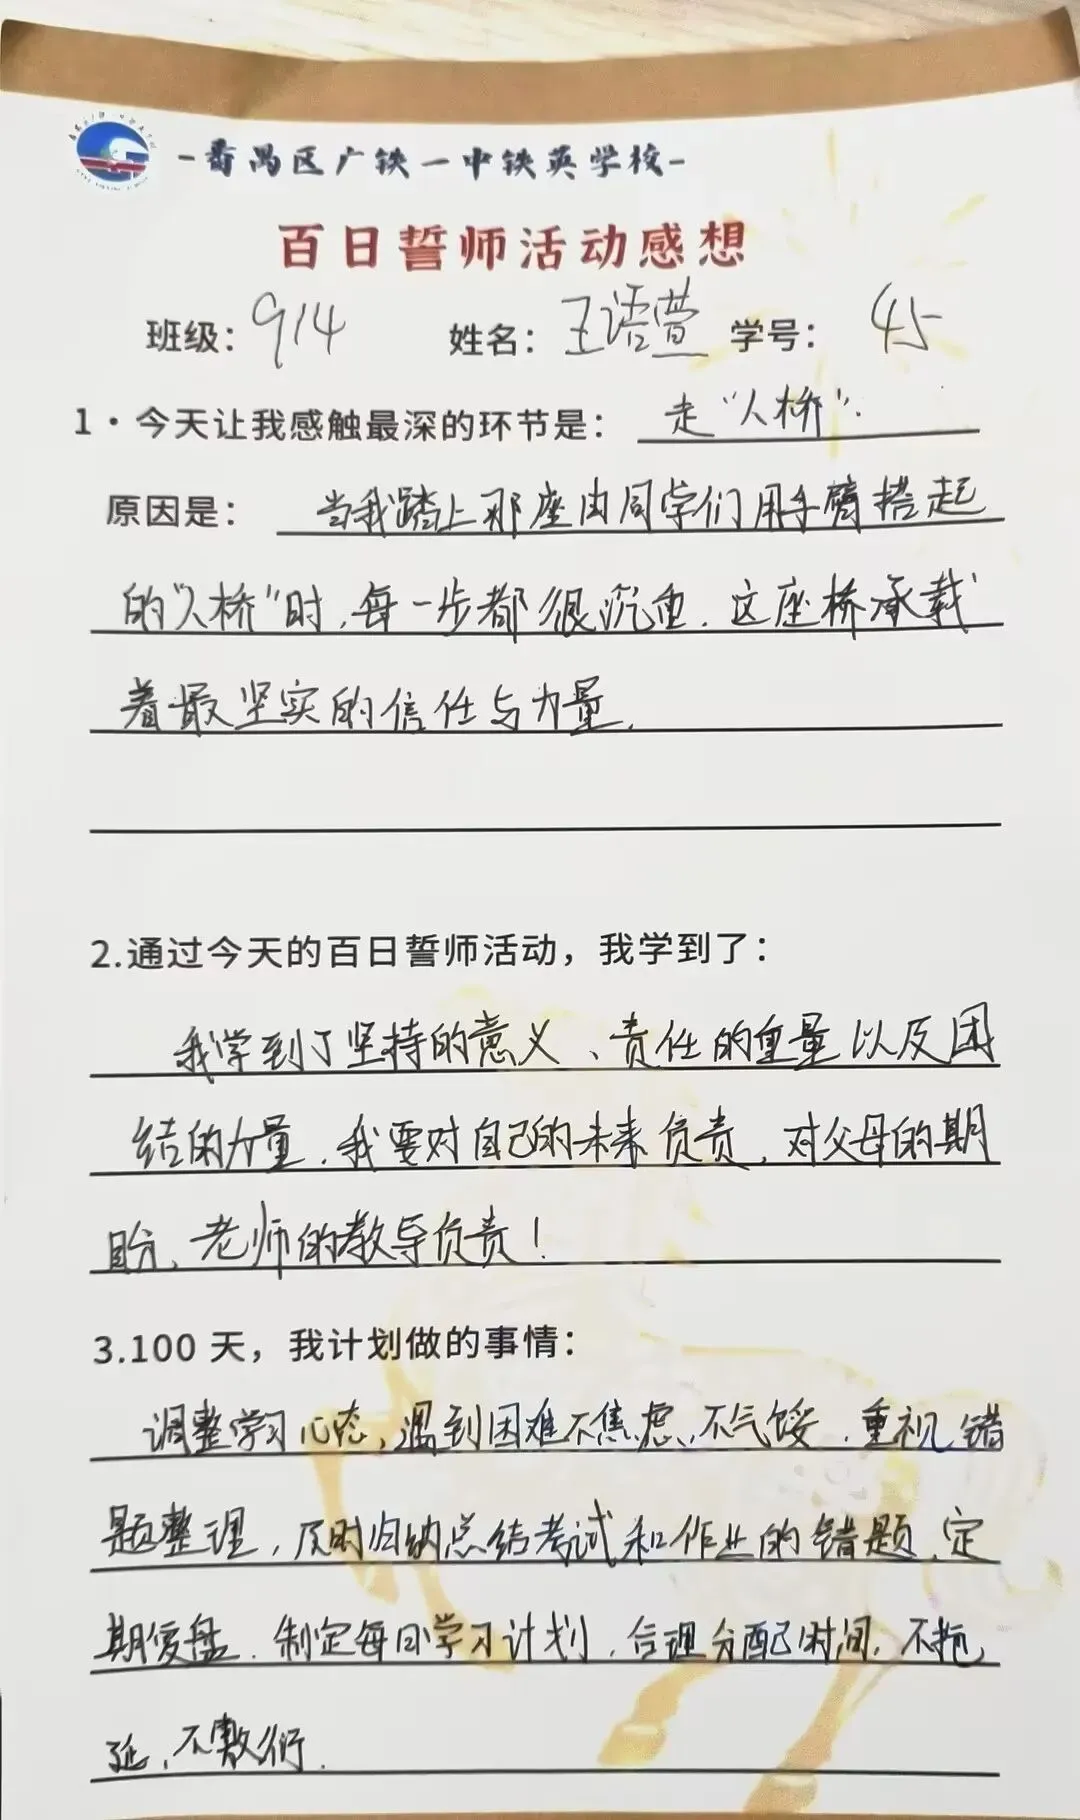 -番禺区广铁一中铁英学校-
百日誓师活动感想
班级：914 姓名：王语萱 学号：45
1·今天让我感触最深的环节是：走“人桥”.
原因是：当我踏上那座由同学们用手臂搭起
的“人桥”时,每一步都很沉重.这座桥承载
着最坚实的信任与力量.
2.通过今天的百日誓师活动，我学到了：
我学到了坚持的意义、责任的重量以及团
结的力量.我要对自己的未来负责,对父母的期
盼、老师的教导负责！
3.100 天，我计划做的事情：
调整学习心态,遇到困难不焦虑、不气馁.重视错
题整理,及时归纳总结考试和作业的错题,定
期复盘.制定每日学习计划,合理分配时间,不拖
延,不敷衍.